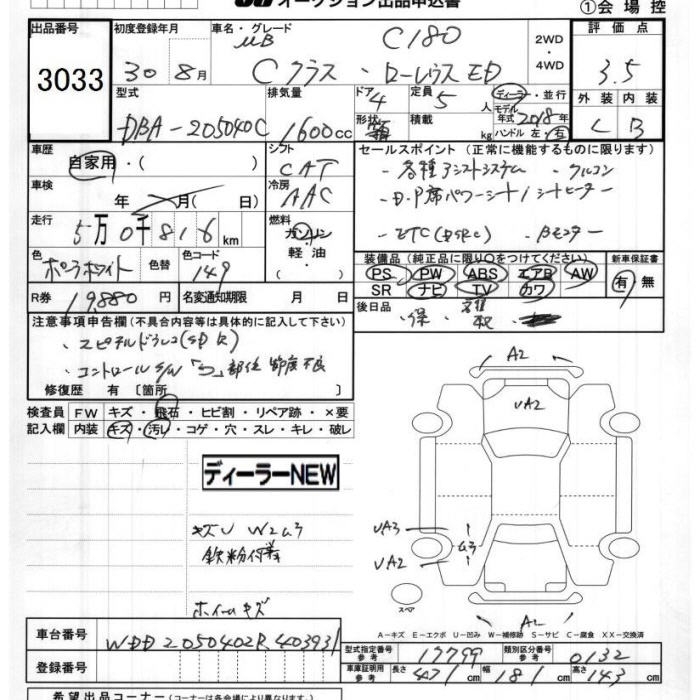 オークション出品申込書
①会場控
出品番号
3033
初度登録年月
30 8月
車名・グレード
C180
Cクラス・ローレウスED
2WD
・4WD
評価点
3.5
外装 内装
C B
型式
DBA-205040C
排気量
1600cc
ドア
4
形状
定員
5人
積載
kg
ディーラー・並行
モデル年式 2018年
ハンドル 左・右
車歴
自家用・( )
シフト
CAT
車検
年 月( 日)
冷房
AAC
走行
5万0千816km
燃料
ガソリン
軽油
色
ポーラホワイト
色替
色コード
149
R券
19,880円
名変通知期限 月 日
セールスポイント(正常に機能するものに限ります)
・各種アシストシステム ・クルコン
・D.P席パワーシート/シートヒーター
・ETC(DSRC) ・Bモニター
装備品(純正品に限り○をつけてください)
PS PW ABS エアB AW
SR ナビ TV カワ
新車保証書
有 無
後日品
・保
注意事項申告欄(不具合内容等は具体的に記入して下さい)
・コントロールS/W「う」部位 節度不良
修復歴 有〔箇所
検査員
記入欄
FW キズ・飛石・ヒビ割・リペア跡・×要
内装 キズ・汚レ・コゲ・穴・スレ・キレ・破レ
ディーラーNEW
キズU W2ムラ
鉄粉付着
ホイールキズ
A2
UA2
UA3
ム3
UA2
A2
スペア
A-キズ E-エクボ U-凹み W-補修跡 S-サビ C-腐食 XX-交換済
車台番号
WDD2050402R403931
登録番号
型式指定番号
参考
17799
類別区分番号
参考
0132
車庫証明用
参考
長さ 471cm 幅 181cm 高さ 143cm
希望出品コーナー(コーナーは各会場により異なります)